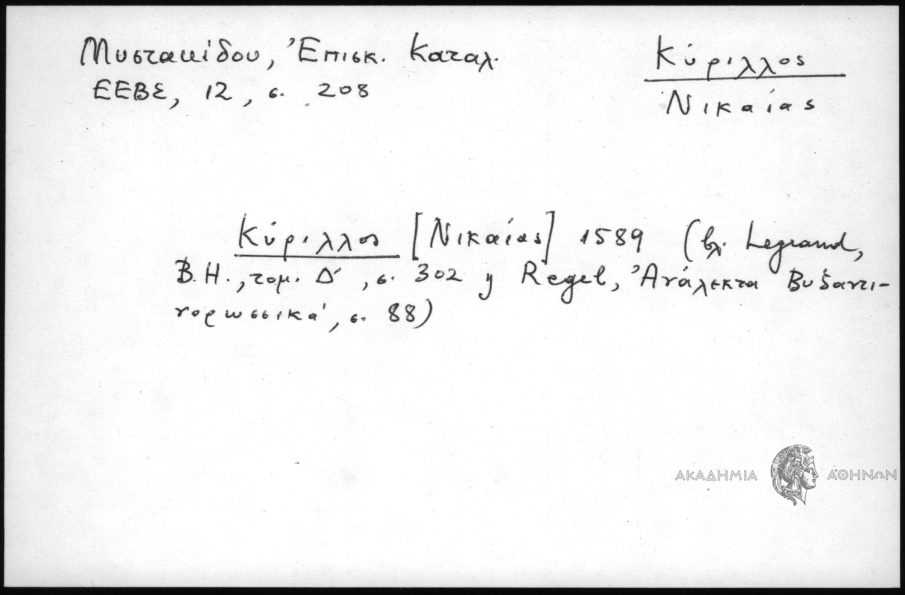 Μυστακίδου, Ἐπισκ. Καταλ.
ΕΕΒΣ, 12, σ. 208
Κύριλλος
Νικαίας
Κύριλλος [Νικαίας] 1589 (βλ. Legrand,
B.H., τομ. Δ΄, σ. 302 ἢ Regel, Ἀνάλεκτα Βυζαντι-
νορωσσικά, σ. 88)
ΑΚΑΔΗΜΙΑ ΑΘΗΝΩΝ